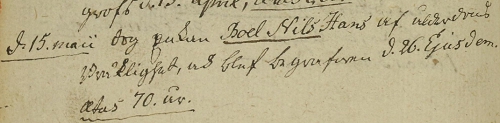 d. 15. april,
d. 15. maii dog pukan Boel Nils Hans af ålderdoms
bräklighet, ock blef begrafwen d. 26. Ejusdem.
ætas 70. år.